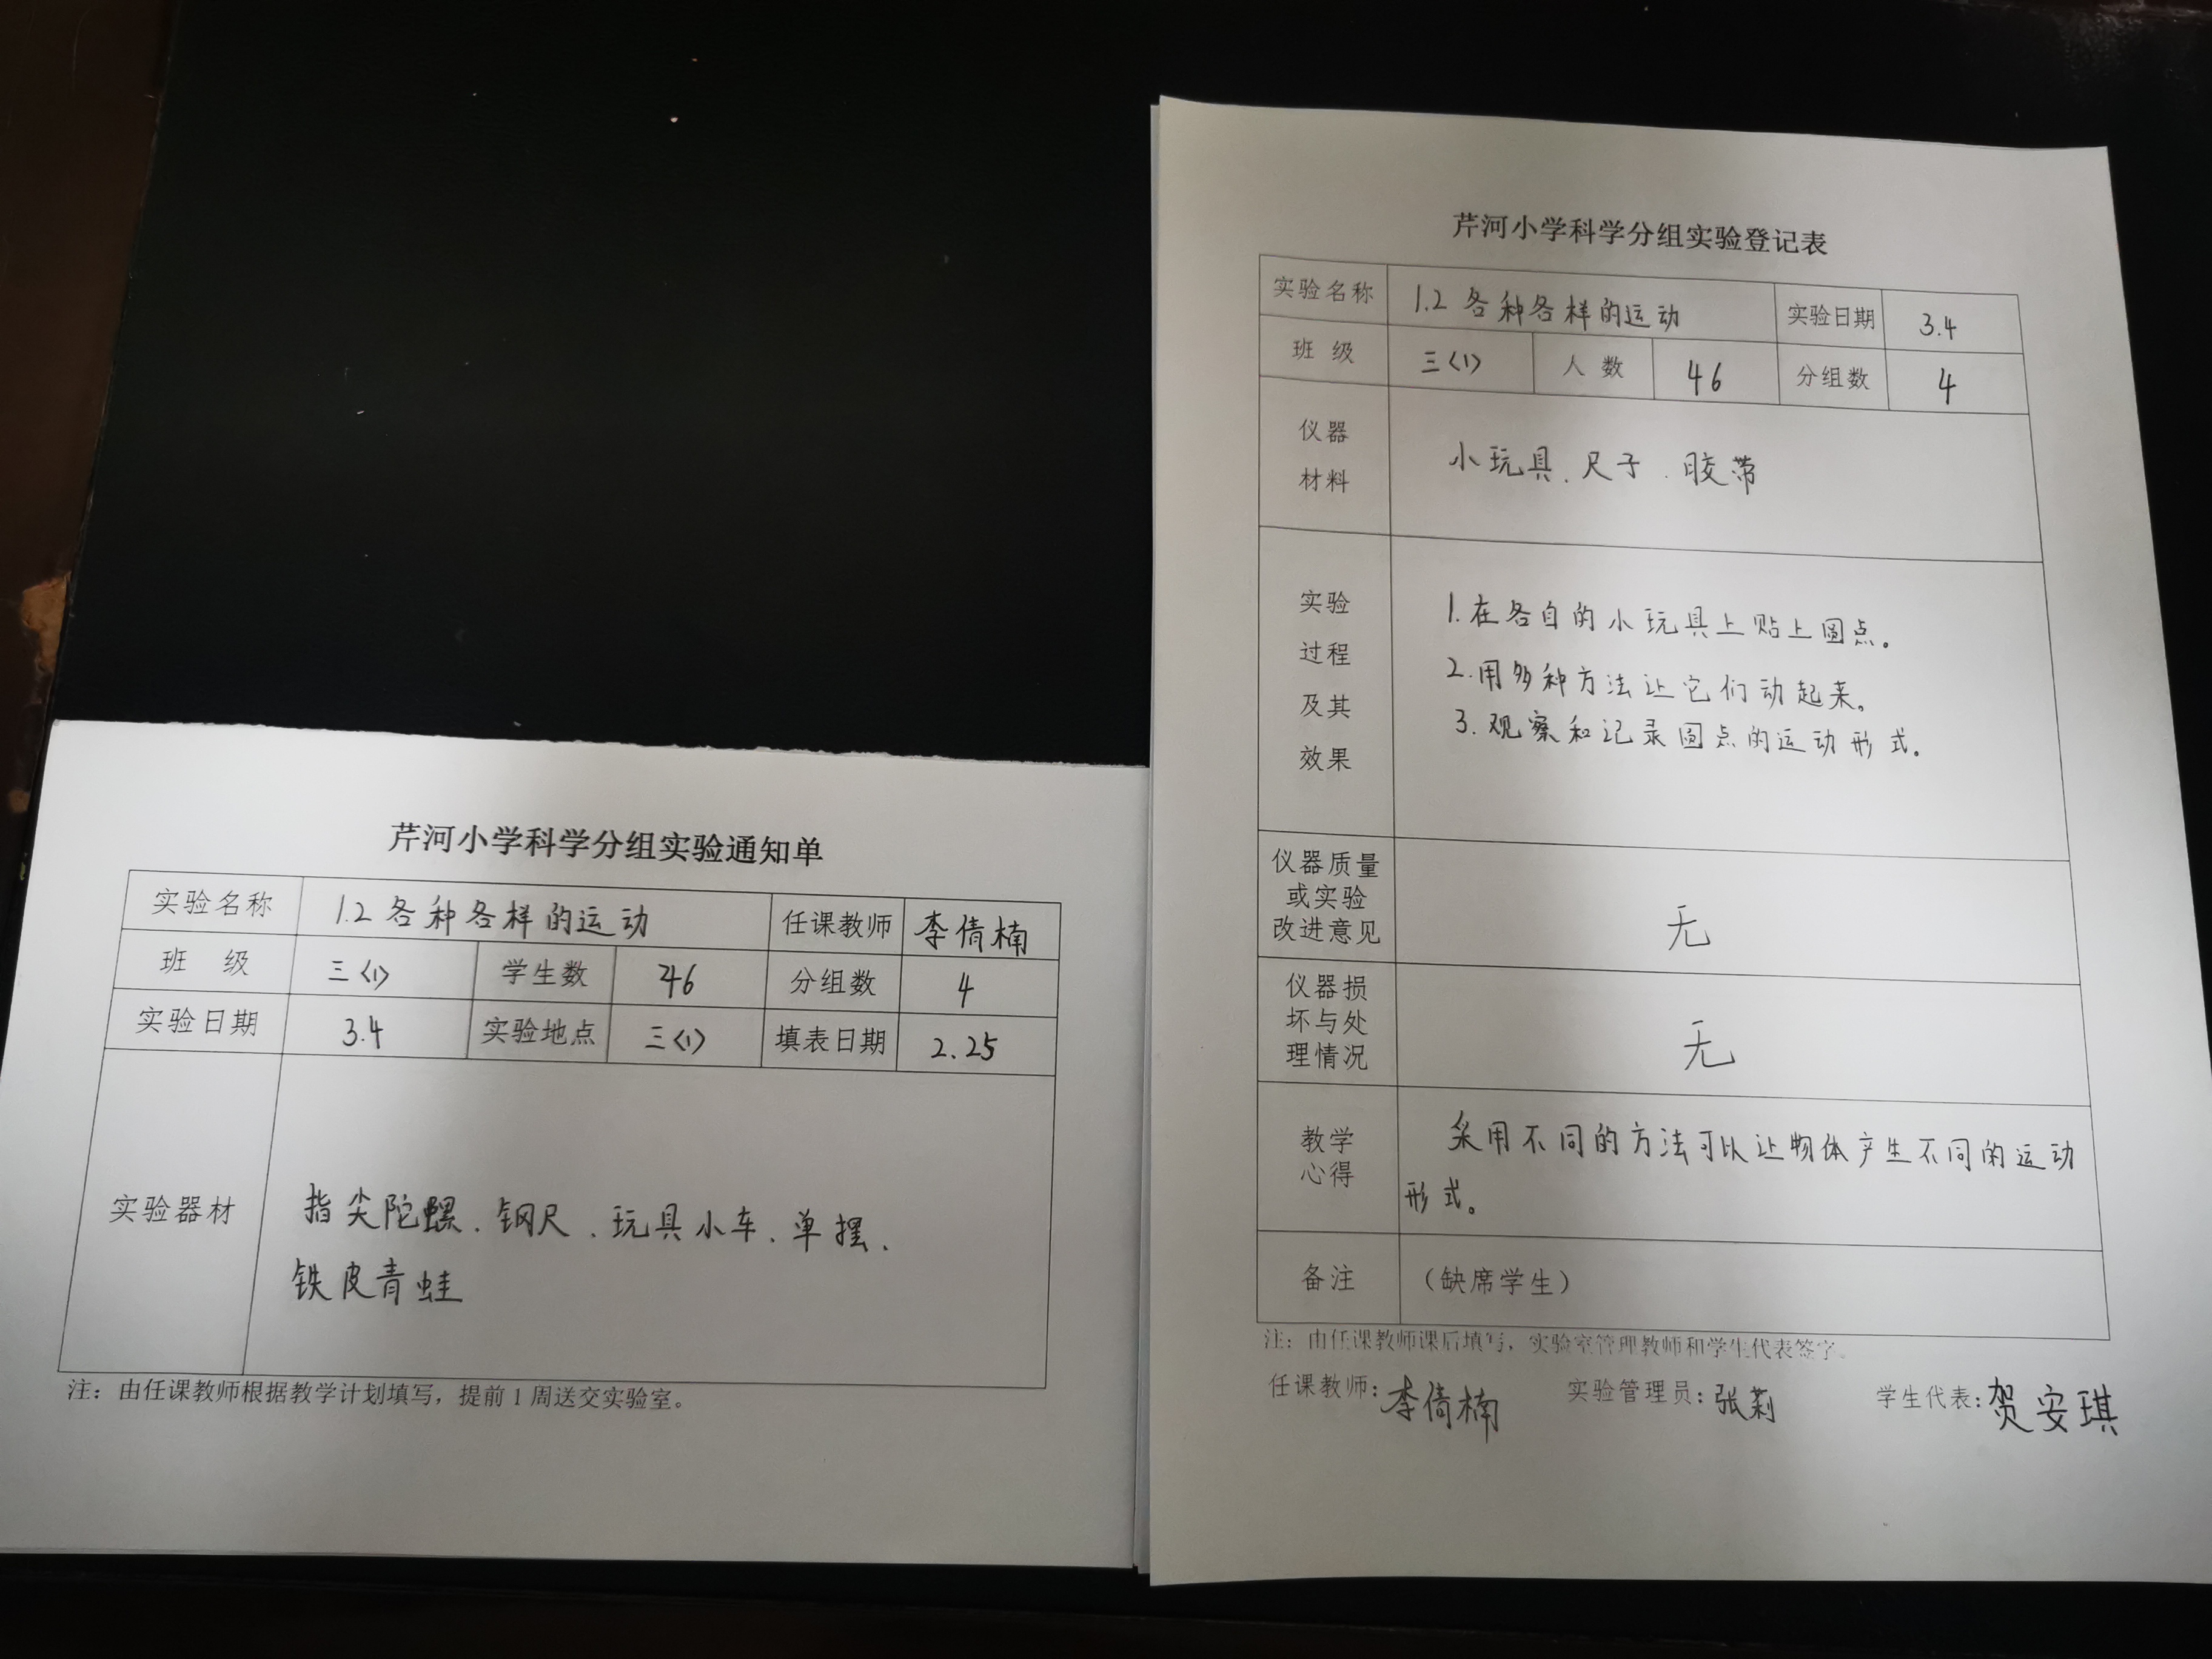 芹河小学科学分组实验通知单
实验名称 1.2 各种各样的运动 任课教师 李倩楠
班 级 三〈1〉 学生数 46 分组数 4
实验日期 3.4 实验地点 三〈1〉 填表日期 2.25
实验器材 指尖陀螺、钢尺、玩具小车、单摆、
铁皮青蛙
注：由任课教师根据教学计划填写，提前1周送交实验室。
芹河小学科学分组实验登记表
实验名称 1.2 各种各样的运动 实验日期 3.4
班 级 三〈1〉 人 数 46 分组数 4
仪器
材料
小玩具、尺子、胶带
实验
过程
及其
效果
1.在各自的小玩具上贴上圆点。
2.用多种方法让它们动起来。
3.观察和记录圆点的运动形式。
仪器质量
或实验
改进意见
无
仪器损
坏与处
理情况
无
教学
心得
采用不同的方法可以让物体产生不同的运动
形式。
备注 （缺席学生）
注：由任课教师课后填写，实验室管理教师和学生代表签字。
任课教师：李倩楠 实验管理员：张莉 学生代表：贺安琪